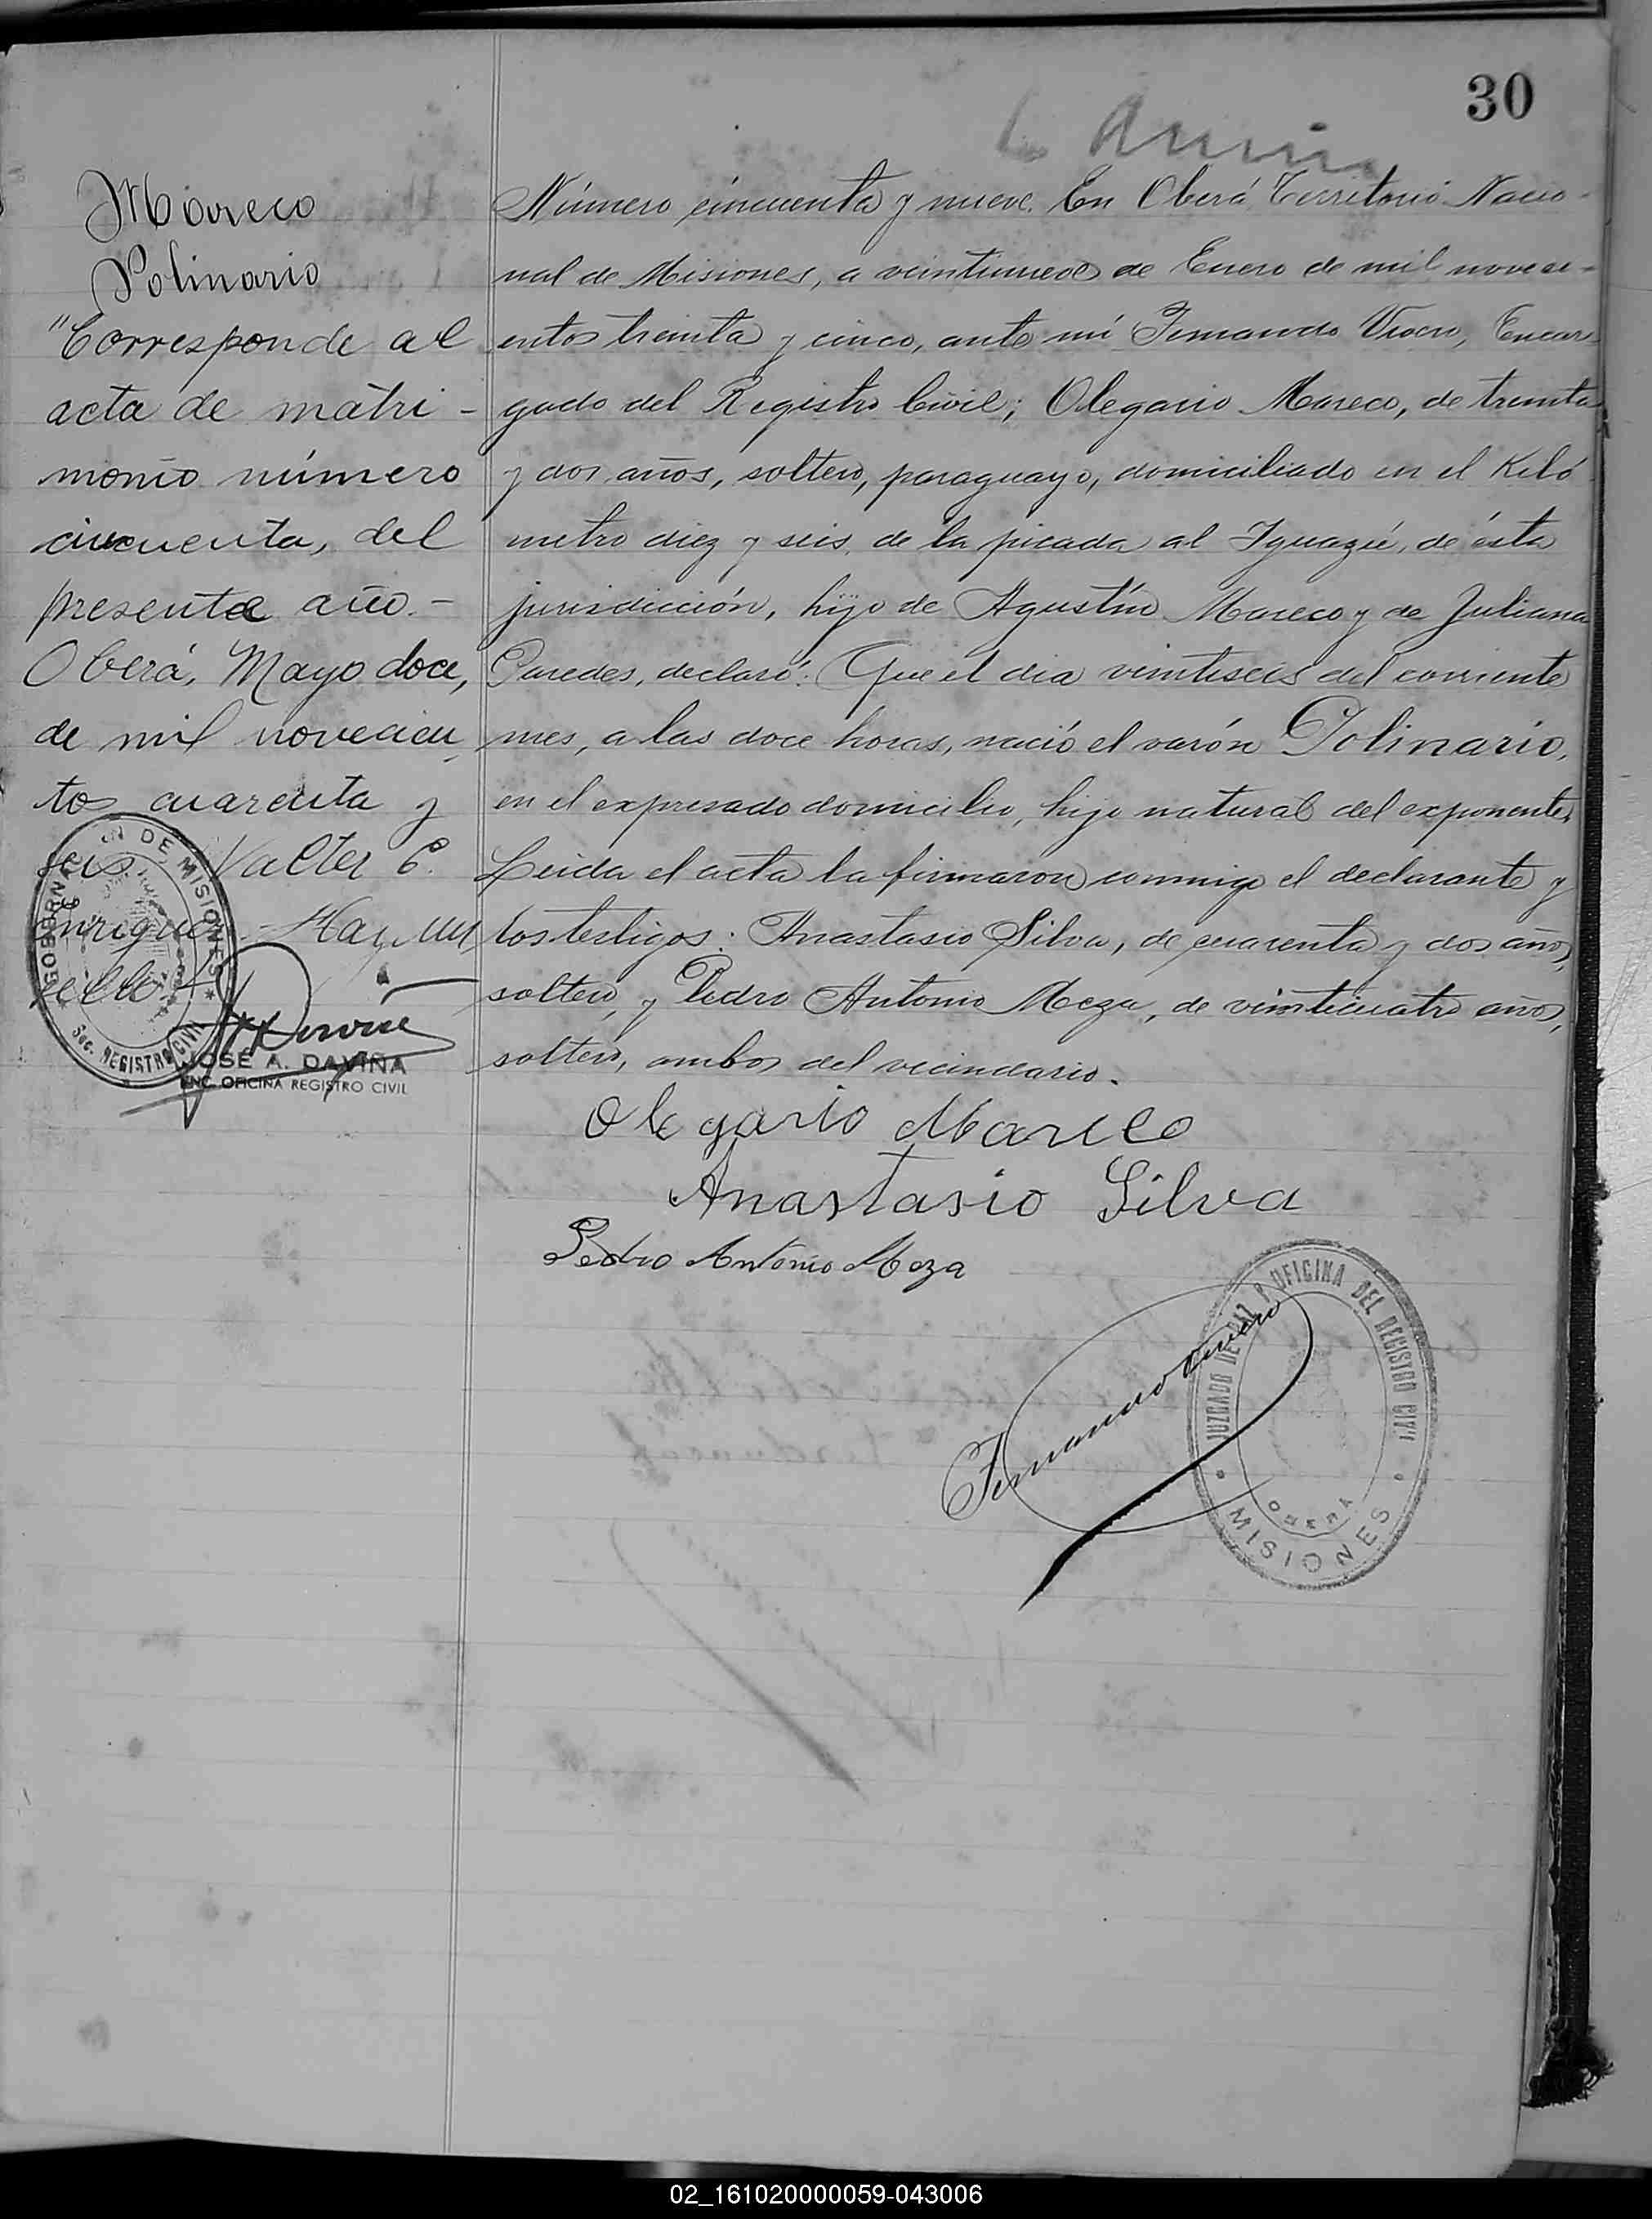 30
Mareco
Polinario
"Corresponde al
acta de matri-
monio número
cincuenta, del
presente año.-
Oberá, Mayo doce,
de mil novecien
tos cuarenta y
seis. Valter E.
Enriquez.- Hay un
sello"
GOBERNACION DE MISIONES
Sec. REGISTRO CIVIL
JOSÉ A. DAVIÑA
ENC. OFICINA REGISTRO CIVIL
Número cincuenta y nueve. En Oberá Territorio Nacio-
nal de Misiones, a veintinueve de Enero de mil noveci-
entos treinta y cinco, ante mí Fernando Vivero, Encar-
gado del Registro Civil; Olegario Mareco, de treinta
y dos años, soltero, paraguayo, domiciliado en el Kiló
metro diez y seis, de la picada al Yguazú, de ésta
jurisdicción, hijo de Agustín Mareco y de Juliana
Paredes, declaró: Que el dia veintiseis del corriente
mes, a las doce horas, nació el varón Polinario,
en el expresado domicilio, hijo natural del exponente.
Leida el acta la firmaron conmigo el declarante y
los testigos: Anastasio Silva, de cuarenta y dos años,
soltero, y Pedro Antonio Meza, de veinticuatro años,
soltero, ambos del vecindario.
Olegario Mareco
Anastasio Silva
Pedro Antonio Meza
Fernando Vivero
JUZGADO DE PAZ Y OFICINA DEL REGISTRO CIVIL
OBERÁ
MISIONES
02_161020000059-043006